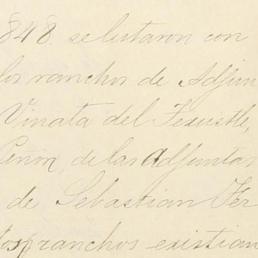 848. se listaron con
los ranchos de Adjun
Vinata del
Peñon, de las Adjuntas
de Sebastian Fer
ranchos existian